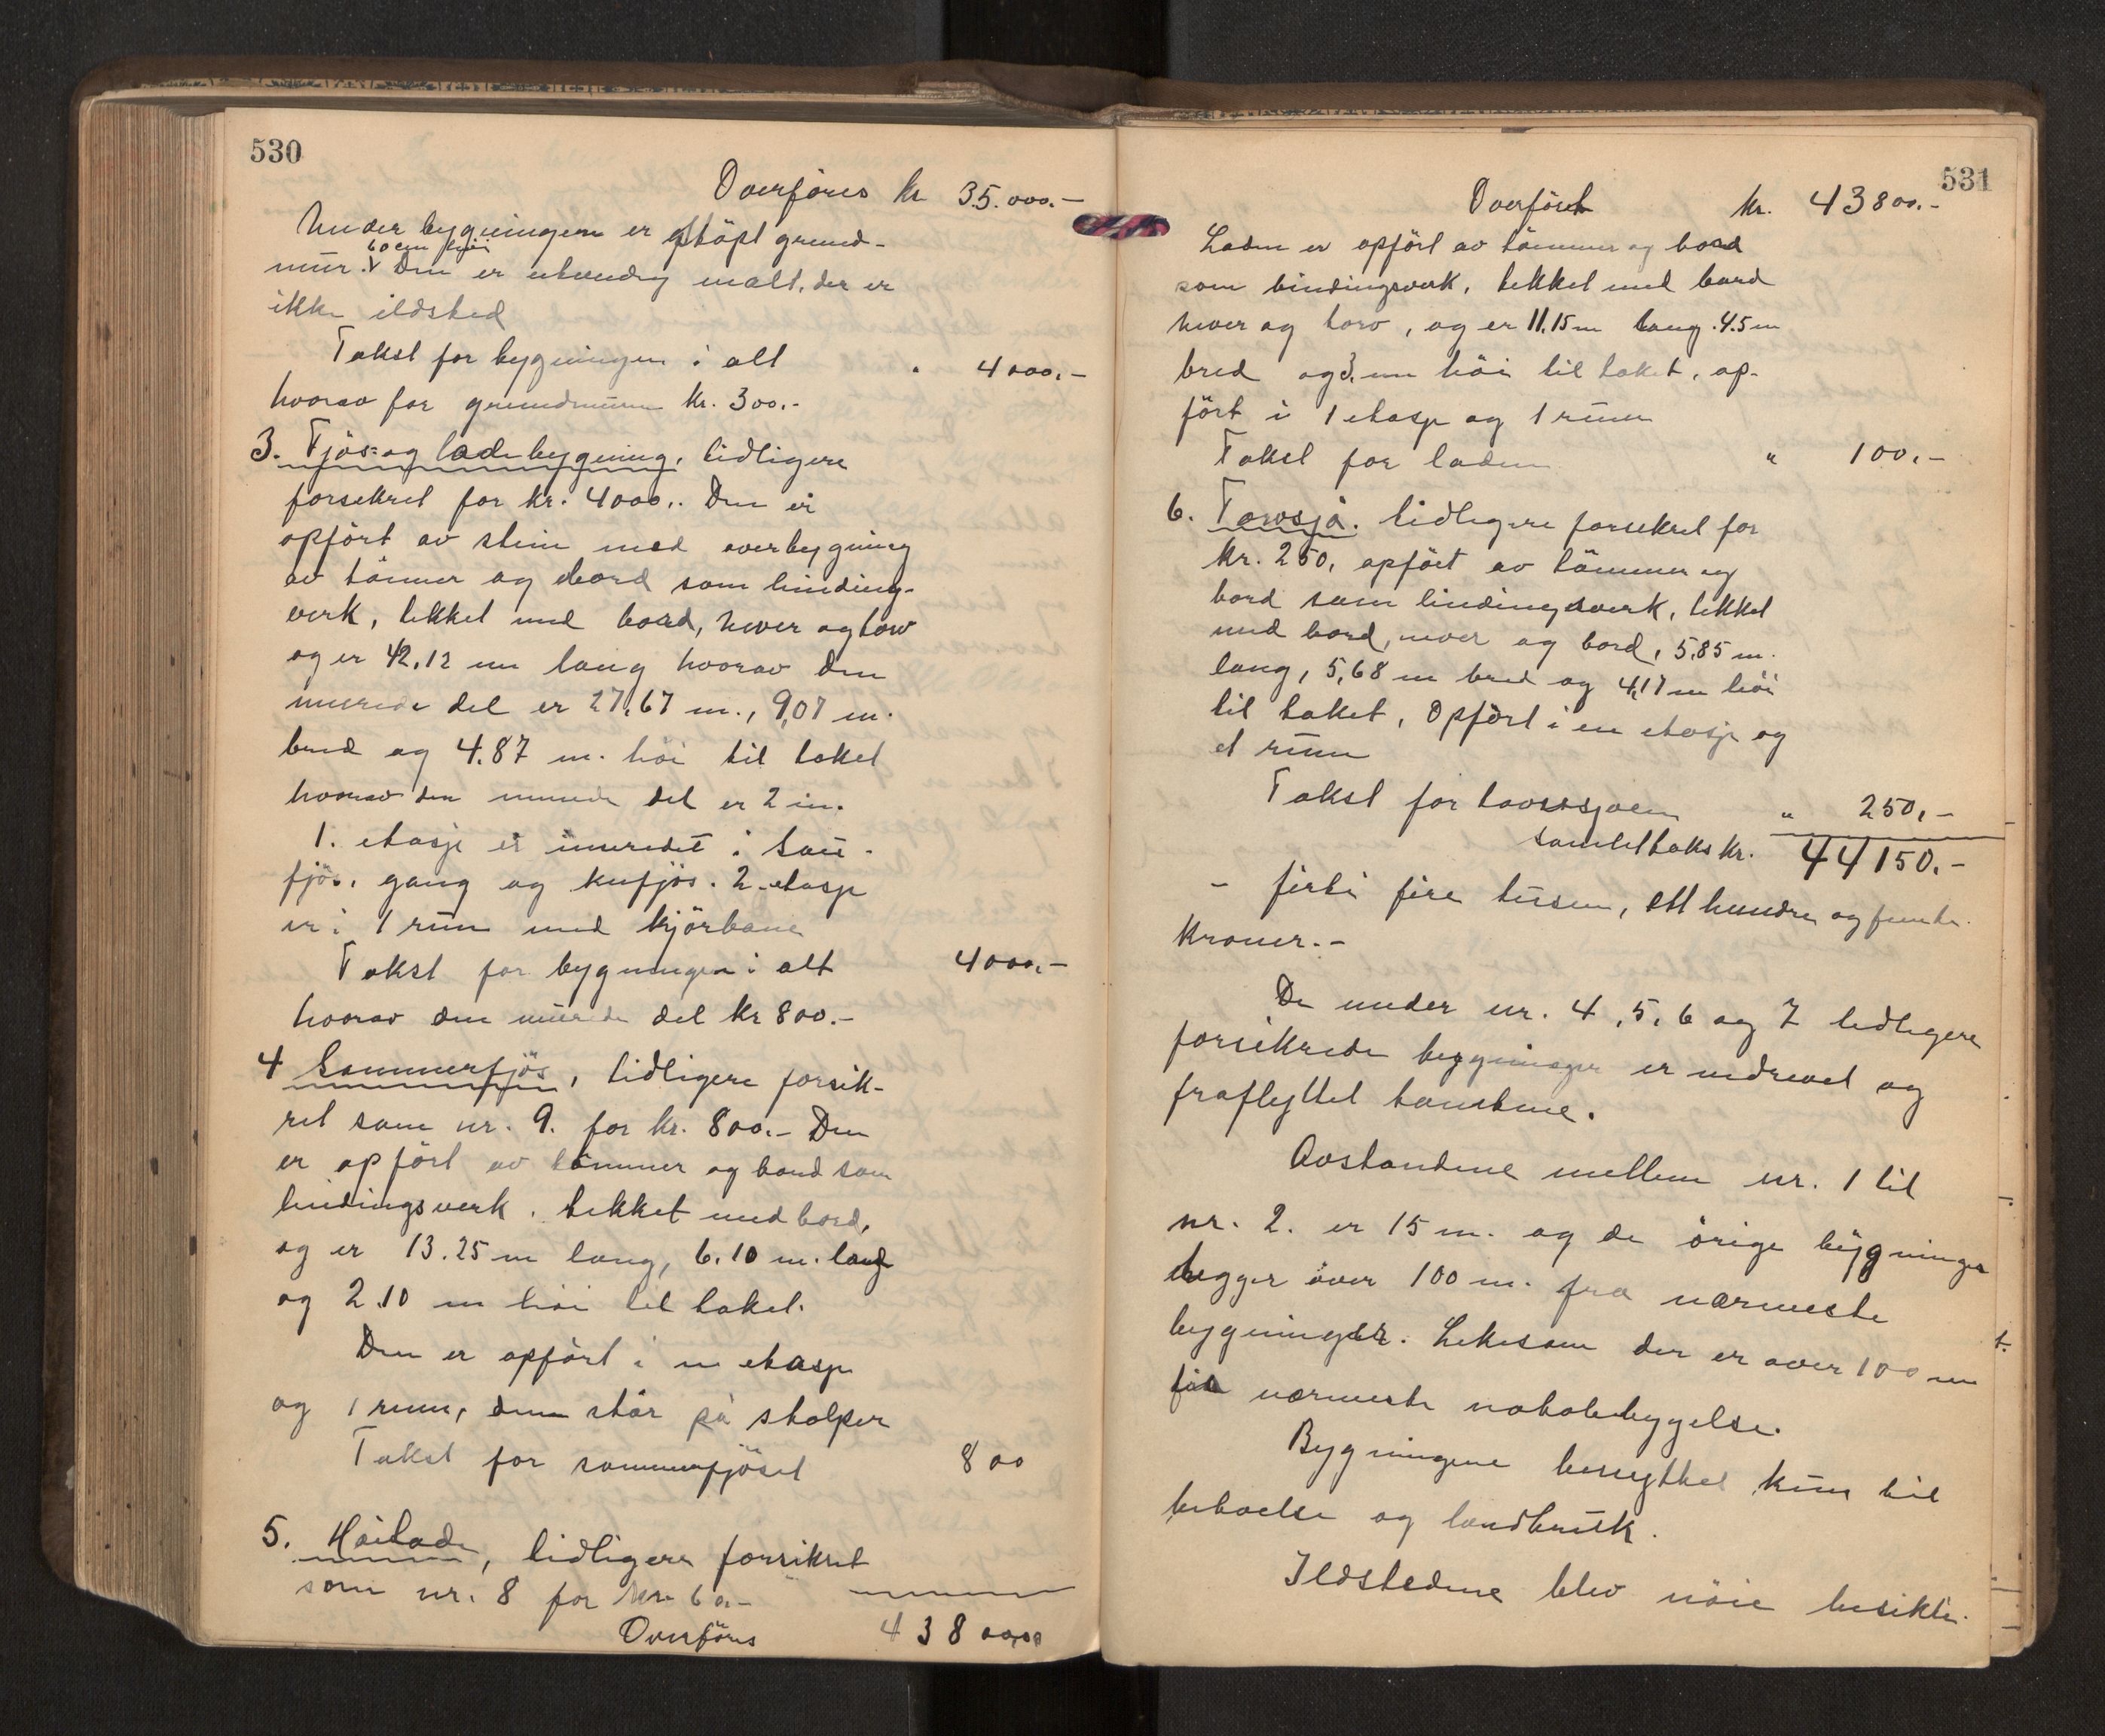 530
Overføres kr 35.000.-
Under bygningen er støpt grund-
60 cm høi
mur. Den er utvendig malt, der er
ikke ildsted
Takst for bygningen i alt " 4000.-
hvorav for grundmuren kr. 300.-
3. Fjös- og ladebygning, tidligere
forsekret for kr. 4000.. Den er
opført av stein med overbygning
av tömmer og bord som binding-
verk, tekket med bord, never og torv
og er 42,12 m lang hvorav den
murede del er 27,67 m., 9,07 m.
bred og 4.87 m. höi til taket
hvorav den murede del er 2 m.
1. etasje er innredet i sau-
fjös, gang og kufjös. 2. etasje
er i 1 rum med kjörbane
Takst for bygningen i alt 4000.-
hvorav den murede del kr 800.-
4 Sommerfjös, tidligere forsik-
ret som nr. 9. for kr. 800.- Den
er opfört av tömmer og bord som
bindingsverk. tekket med bord,
og er 13.25 m lang, 6.10 m.
og 2.10 m höi til taket.
Den er opfört i en etasje
og 1 rum, den står på stolper
Takst for sommerfjöset 800
5. Höilade, tidligere forsikret
som nr. 8 for kr 60.-
Overföres 43800,00
531
Overfört kr. 43800.-
Laden er opfört av tömmer og bord
som bindingsverk, tekket med bord
never og torv, og er 11,15 m lang. 4.5 m
bred og 3. m höi til taket, op-
fört i 1 etasje og 1 rum
Takst for laden " 100.-
6. Torvsjå. tidligere forsekret for
kr. 250, opfört av tömmer og
bord som bindingsverk, tekket
med bord, never og bord, 5,85 m.
lang, 5,68 m bred og 4,17 m höi
til taket, Opfört i en etasje og
et rum
Takst for torvsjåen " 250,-
samlet takst kr. 44150.-
- firti fire tusen, ett hundre og femti
kroner.-
De under nr. 4, 5, 6 og 7 tidligere
forsikrede bygninger er nedrevet og
fraflyttet tomtene.
Avstandene mellem nr. 1 til
nr. 2. er 15 m. og de örige bygninger
ligger över 100 m. fra nærmeste
bygninger. Likesom der er over 100 m
til nærmeste nabobebygelse.
Bygningene benyttes kun til
beboelse og landbruk.
Ildstedene blev nöie besikti-